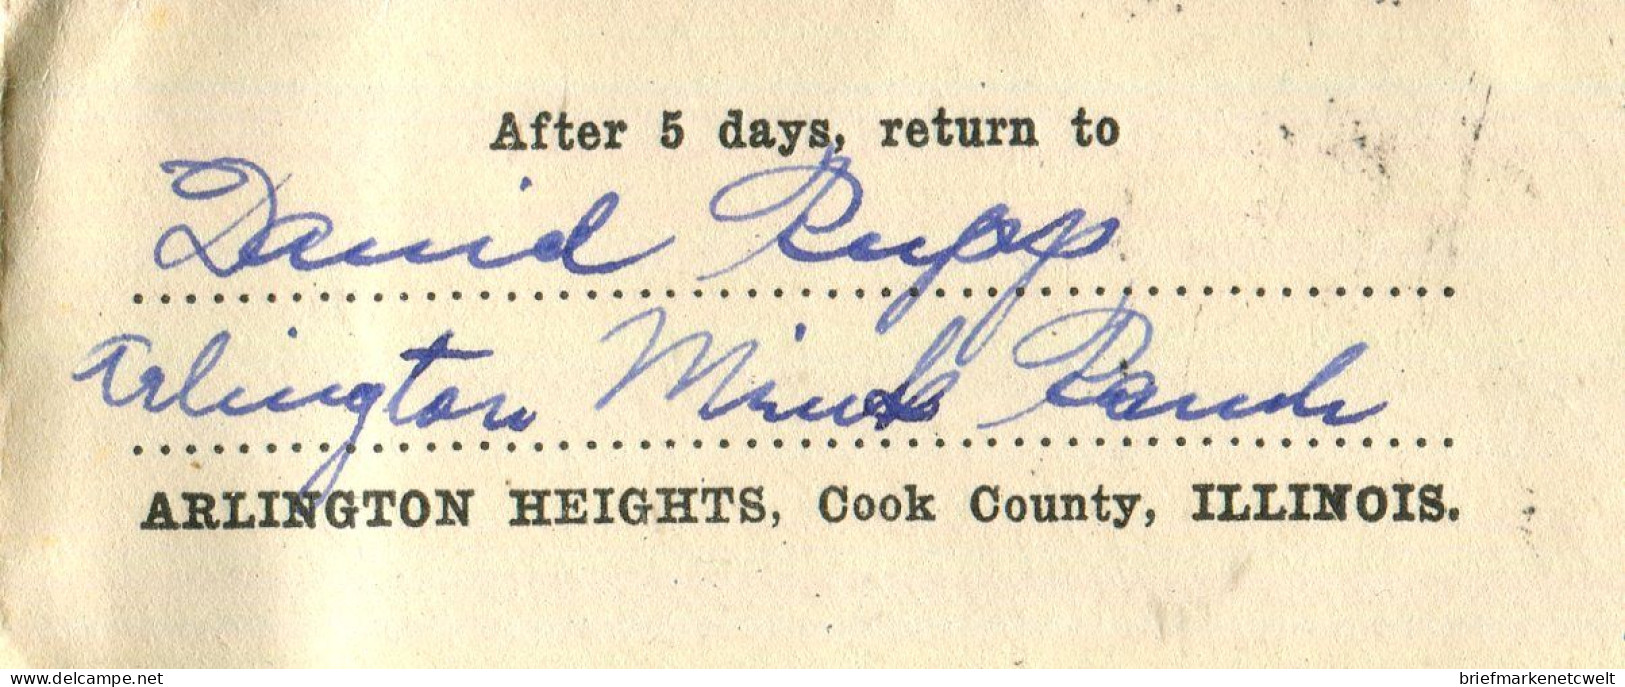 After 5 days, return to
David Rupp
Arlington Mink Ranch
ARLINGTON HEIGHTS, Cook County, ILLINOIS.
delcampe.net
briefmarkenetcwelt